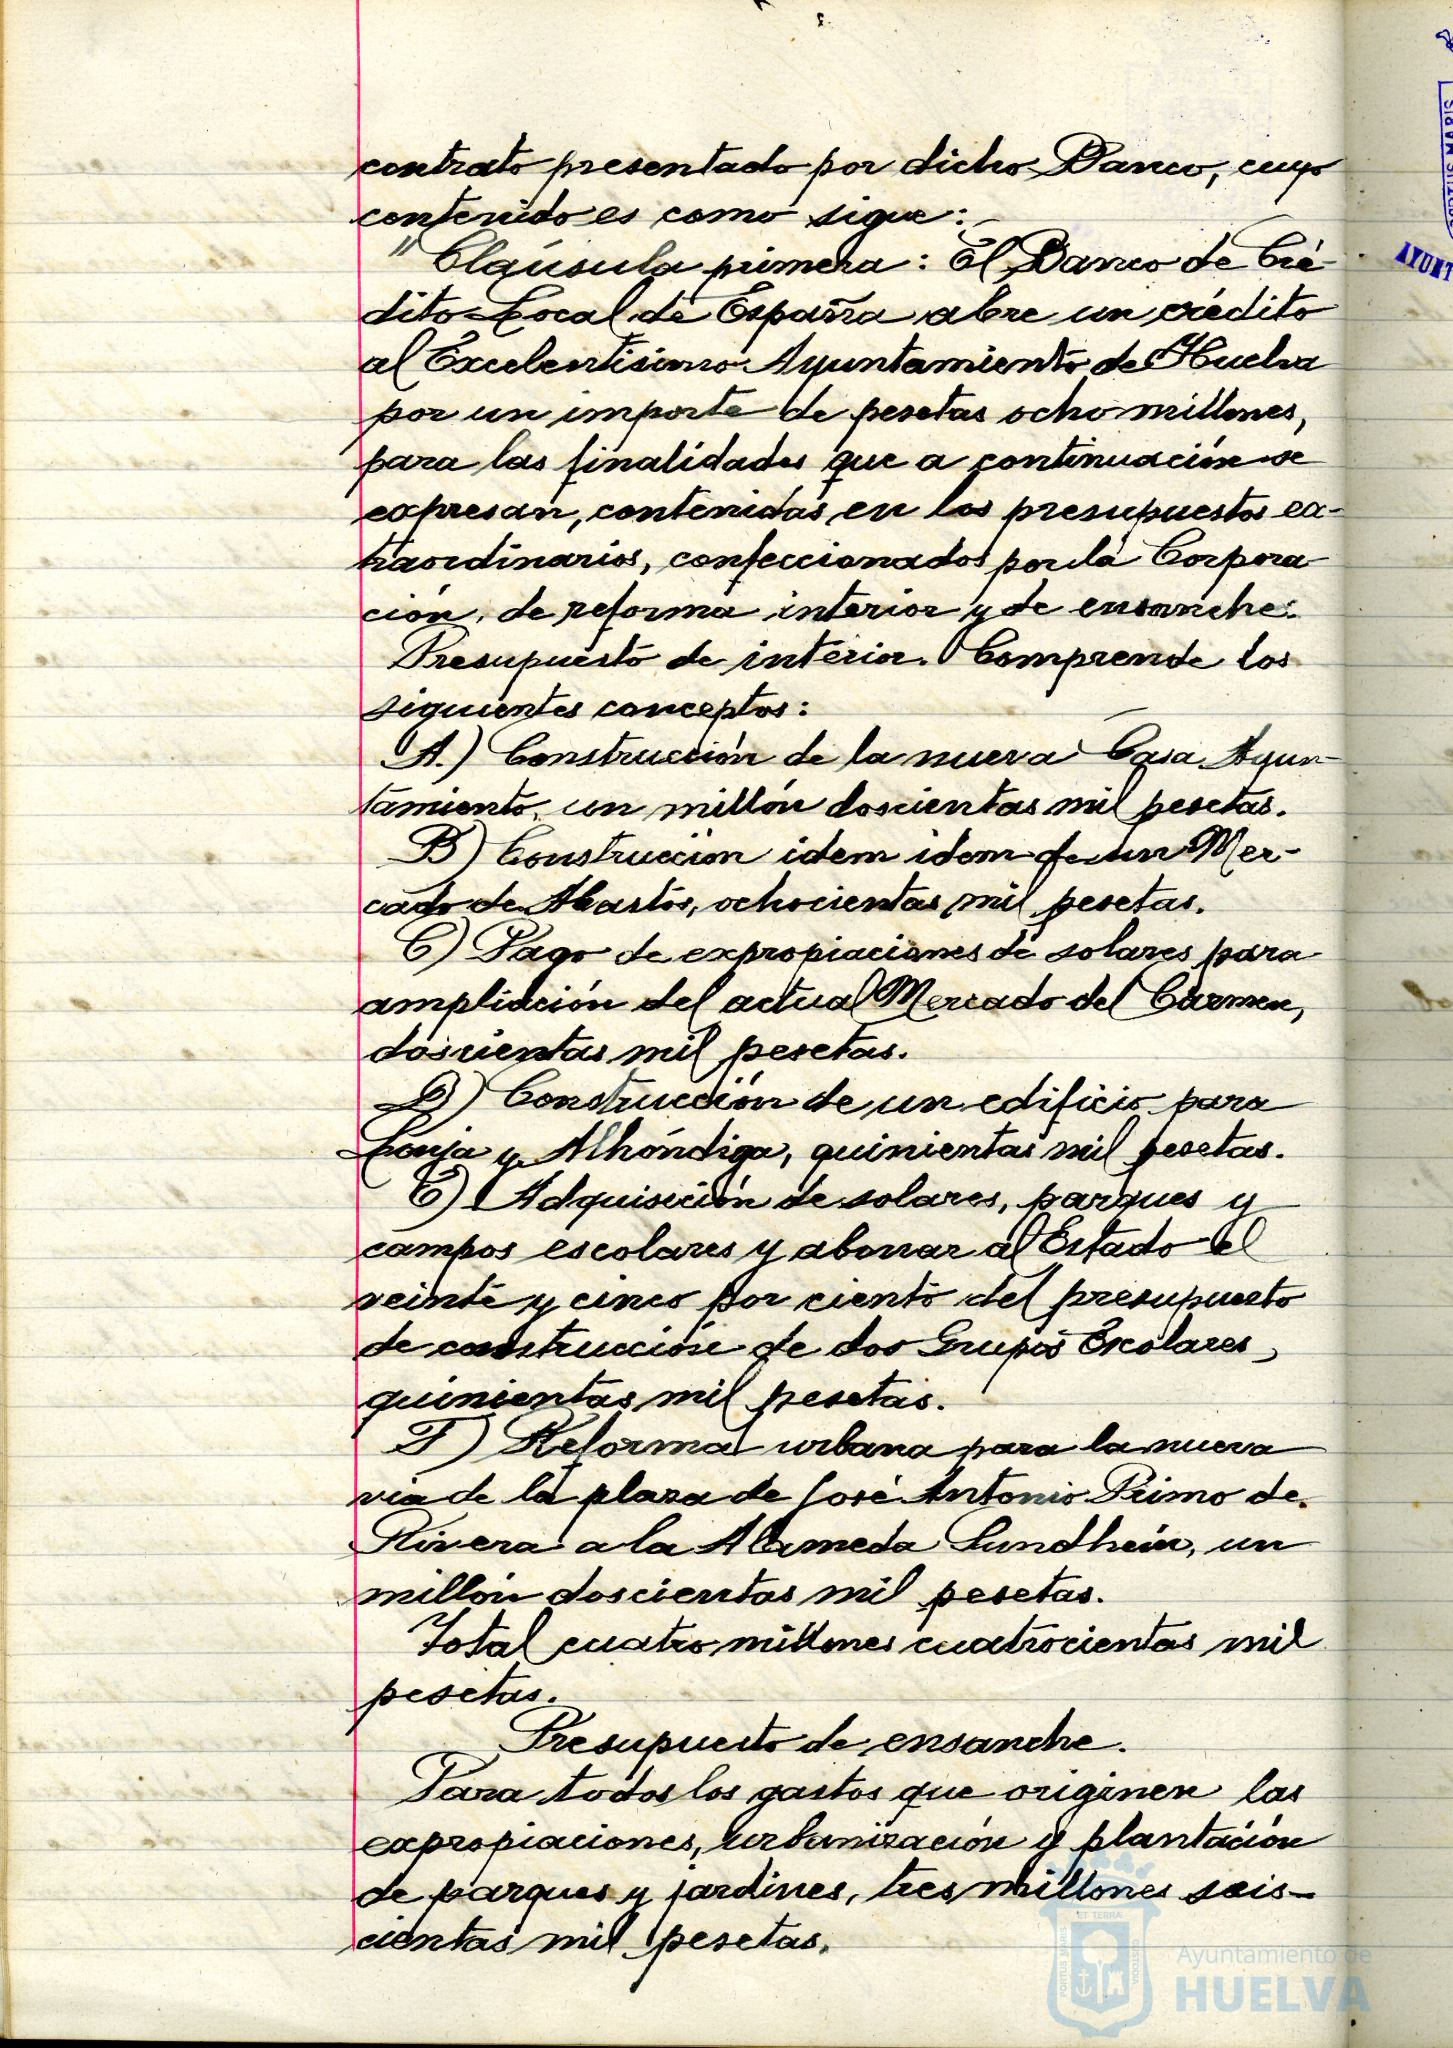 contrato presentado por dicho Banco, cuyo
contenido es como sigue:
"Claúsula primera: El Banco de Cré-
dito Local de España abre un crédito
al Excelentísimo Ayuntamiento de Huelva
por un importe de pesetas ocho millones,
para las finalidades que a continuación se
expresan, contenidas en los presupuestos ex-
traordinarios, confeccionados por la Corpora
ción, de reforma interior y de ensanche.
Presupuesto de interior. Comprende los
siguientes conceptos:
A.) Construcción de la nueva Casa Ayun-
tamiento, un millón doscientas mil pesetas.
B) Construcción idem idem de un Mer-
cado de Abastos, ochocientas mil pesetas.
C) Pago de expropiaciones de solares para
ampliación del actual Mercado del Carmen,
doscientas mil pesetas.
D) Construcción de un edificio para
Lonja y Alhóndiga, quinientas mil pesetas.
E) Adquisición de solares, parques y
campos escolares y abonar al Estado el
veinte y cinco por ciento del presupuesto
de construcción de dos Grupos Escolares,
quinientas mil pesetas.
F) Reforma urbana para la nueva
via de la plaza de José Antonio Primo de
Rivera a la Alameda Sundhein, un
millón doscientas mil pesetas.
Total cuatro millones cuatrocientas mil
pesetas.
Presupuesto de ensanche.
Para todos los gastos que originen las
expropiaciones, urbanización y plantación
de parques y jardines, tres millones seis-
cientas mil pesetas.
PORTUS MARIS
AYUNT
PORTUS MARIS ET TERRAE CUSTODIA
Ayuntamiento de
HUELVA